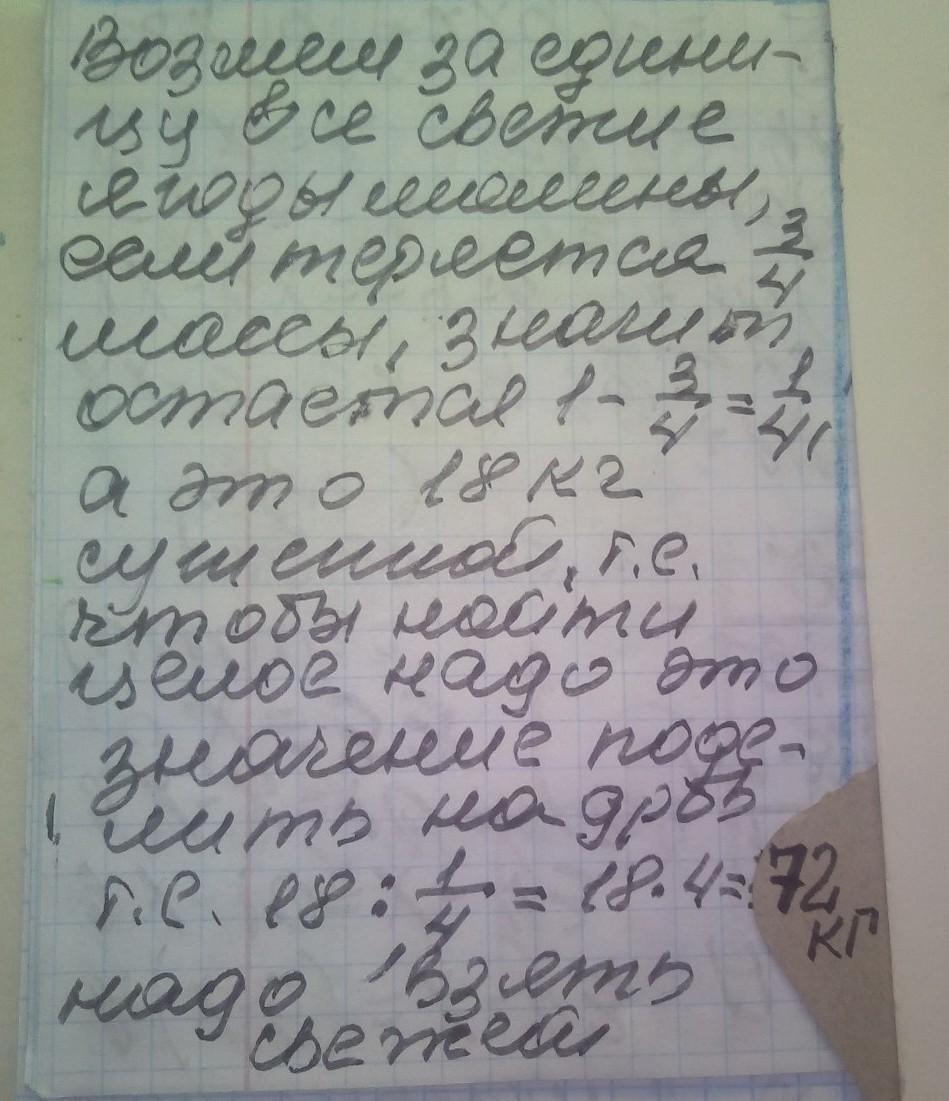 Возмем за едини-
цу все свежие
ягоды малины,
если теряется 3/4
массы, значит
остаётся 1 - 3/4 = 1/4,
а это 18 кг
сушеной, т.е.
чтобы найти
целое надо это
значение поде-
лить на дрбь
т.е. 18 : 1/4 = 18 · 4 = 72
кг
надо взять
свежей